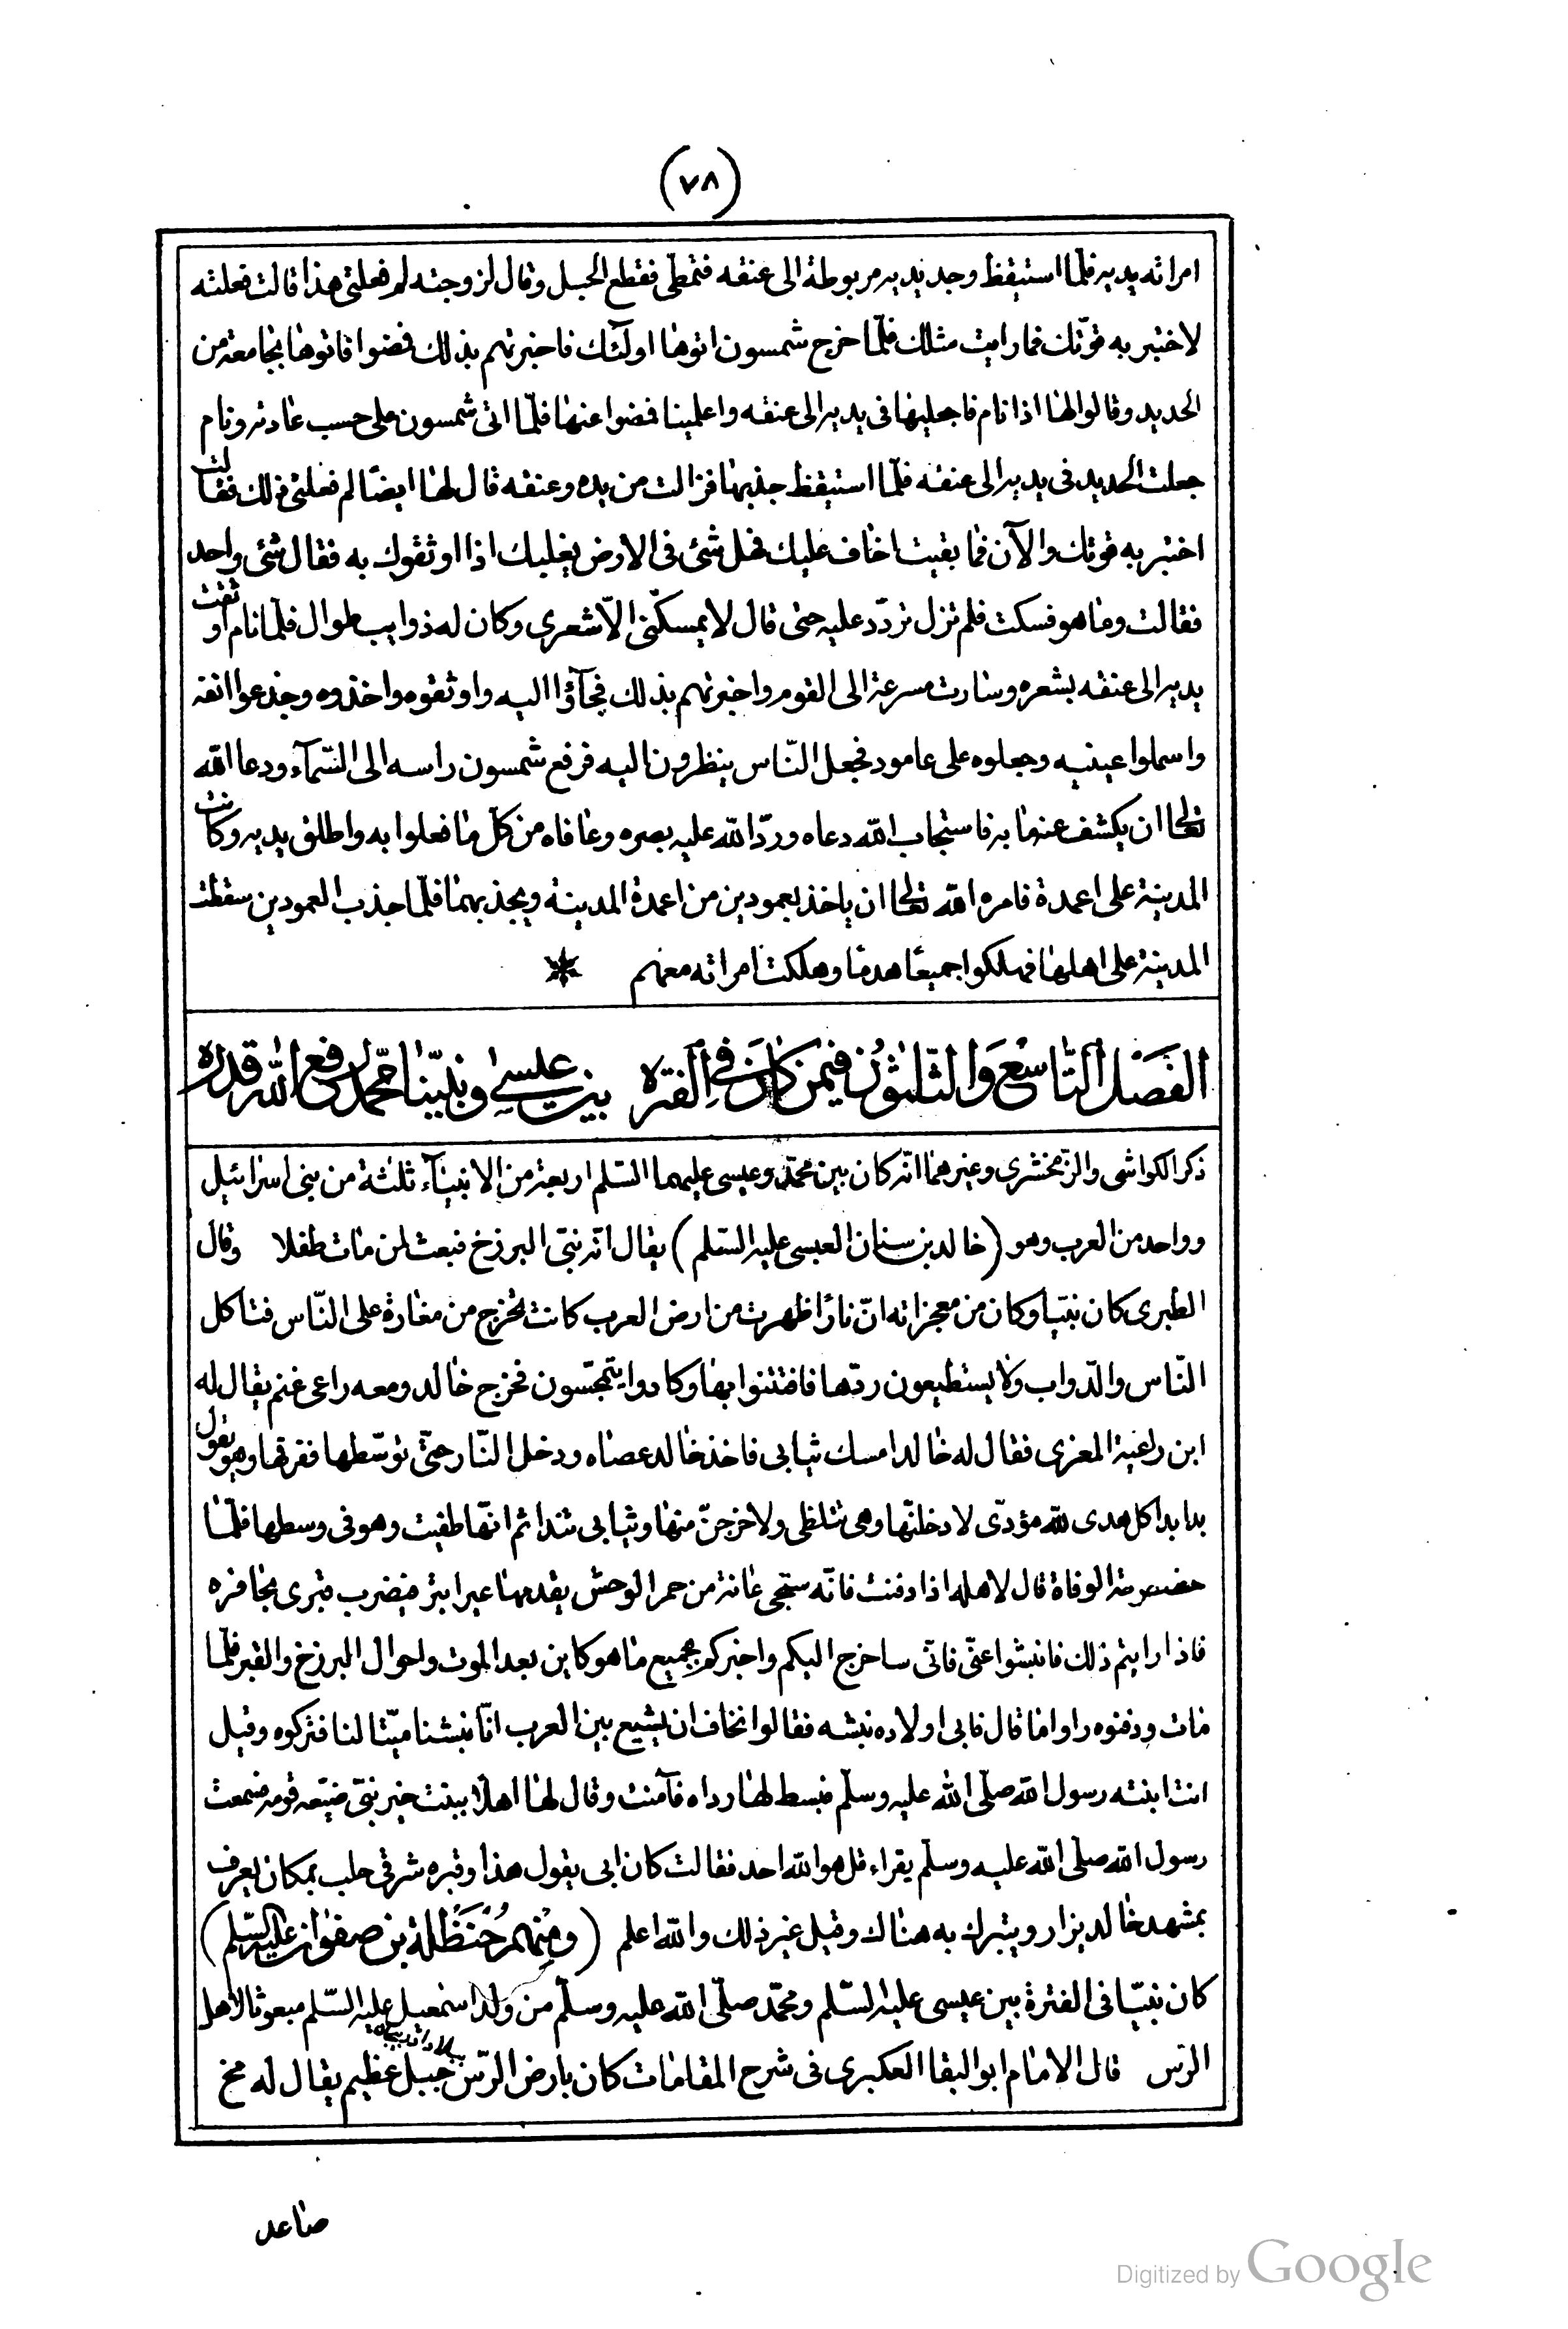 (٧٨)
امراته يديه فلمّا استيقظ وجد يديه مربوطة الى عنقه فتمطّى فقطع الحبل وقال لزوجته لم فعلتى هذا قالت فعلته
لاختبر به قوّتك فما رايت مثلك فلمّا خرج شمسون اتوها اولٓئك فاخبرتهم بذلك فمضوا فاتوها بجامعة من
الحديد وقالوا لها اذا نام فاجعليها فى يديه الى عنقه واعلمينا فمضوا عنها فلمّا اتى شمسون على حسب عادته ونام
جعلت الحديد فى يديه الى عنقه فلمّا استيقظ جذبها فزالت من يده وعنقه قال لها ايضًا لم فعلتى ذلك فقالت
اختبر به قوتك والآن فما بقيت اخاف عليك فهل شئ فى الارض يغلبك اذا اوثقوك به فقال شئ واحد
فقالت وما هو فسكت فلم تزل تردّد عليه حتى قال لا يمسكنى الاّ شعرى وكان له ذوايب طوال فلمّا نام اوثقت
يديه الى عنقه بشعره وسارت مسرعة الى القوم واخبرتهم بذلك فجآؤا اليه واوثقوه واخذوه وجذعوا انفه
واسملوا عينيه وجعلوه على عامود فجعل النّاس ينظرون اليه فرفع شمسون راسه الى السّمآء ودعا الله
تعالى ان يكشف عنه ما به فاستجاب الله دعاه وردّ الله عليه بصره وعافاه من كلّ ما فعلوا به واطلق يديه وكانت
المدينة على اعمدة فامره الله تعالى ان ياخذ بعمودين من اعمدة المدينة ويجذبهما فلمّا جذب العمودين سقطت
المدينة على اهلها فهلكوا جميعًا هدمًا وهلكت امراته معهم
الفصل التّاسع والثّلاثون فيمن كان فى الفترة بين عيسى ونبيّنا محمّد رفع الله قدره
ذكر الكواشى والزّمخشرى وغيرهما انّه كان بين محمّد وعيسى عليهما السّلم اربعة من الانبيآء ثلثة من بنى اسرائيل
وواحد من العرب وهو (خالد بن سنان العبسى عليه السّلم) يقال انّه نبىّ البرزخ فبعث لمن مات طفلا وقال
الطبرى كان نبيّا وكان من معجزاته انّ نارًا ظهرت من ارض العرب كانت تخرج من مغارة على النّاس فتاكل
النّاس والدّواب ولا يستطيعون ردّها فافتتنوا بها وكادوا يتمجّسون فخرج خالد ومعه راعى غنم يقال له
ابن راعية المعزى فقال له خالد امسك ثيابى فاخذ خالد عصاه ودخل النّار حتّى توسّطها ففرقها وهو يقول
بدا بدا كل هدى لله مؤدّى لادخلنّها وهى تتلظى ولاخرجنّ منها وثيابى تندا ثم انّها طفيت وهو فى وسطها فلمّا
حضرته الوفاة قال لاهله اذا دفنت فانّه ستجى عانة من حمر الوحش يقدمها عير ابتر فيضرب قبرى بحافره
فاذا رايتم ذلك فانبشوا عنّى فانّى ساخرج اليكم واخبركم بجميع ما هو كاين بعد الموت واحوال البرزخ والقبر فلمّا
مات ودفنوه راوا ما قال فابى اولاده نبشه فقالوا نخاف ان يشيع بين العرب انّا نبشنا ميّتا لنا فتركوه وقيل
اتت ابنته رسول الله صلّى الله عليه وسلّم فبسط لها رداه فآمنت وقال لها اهلًا ببنت خير نبىّ ضيّعه قومه فسمعت
رسول الله صلّى الله عليه وسلّم يقراء قل هو الله احد فقالت كان ابى يقول هذا وقبره شرقى حلب بمكان يعرف
بمشهد خالد يزار ويتبرك به هناك وقيل غير ذلك والله اعلم (ومنهم حنظلة بن صفوان عليه السّلم)
كان نبيّا فى الفترة بين عيسى عليه السّلم ومحمّد صلّى الله عليه وسلّم من ولد اسمعيل عليه السّلم مبعوثا لاهل
الرّس قال الامام ابو البقا العكبرى فى شرح المقامات كان بارض الرّس جبل عظيم يقال له مخ
صاعد
Digitized by Google